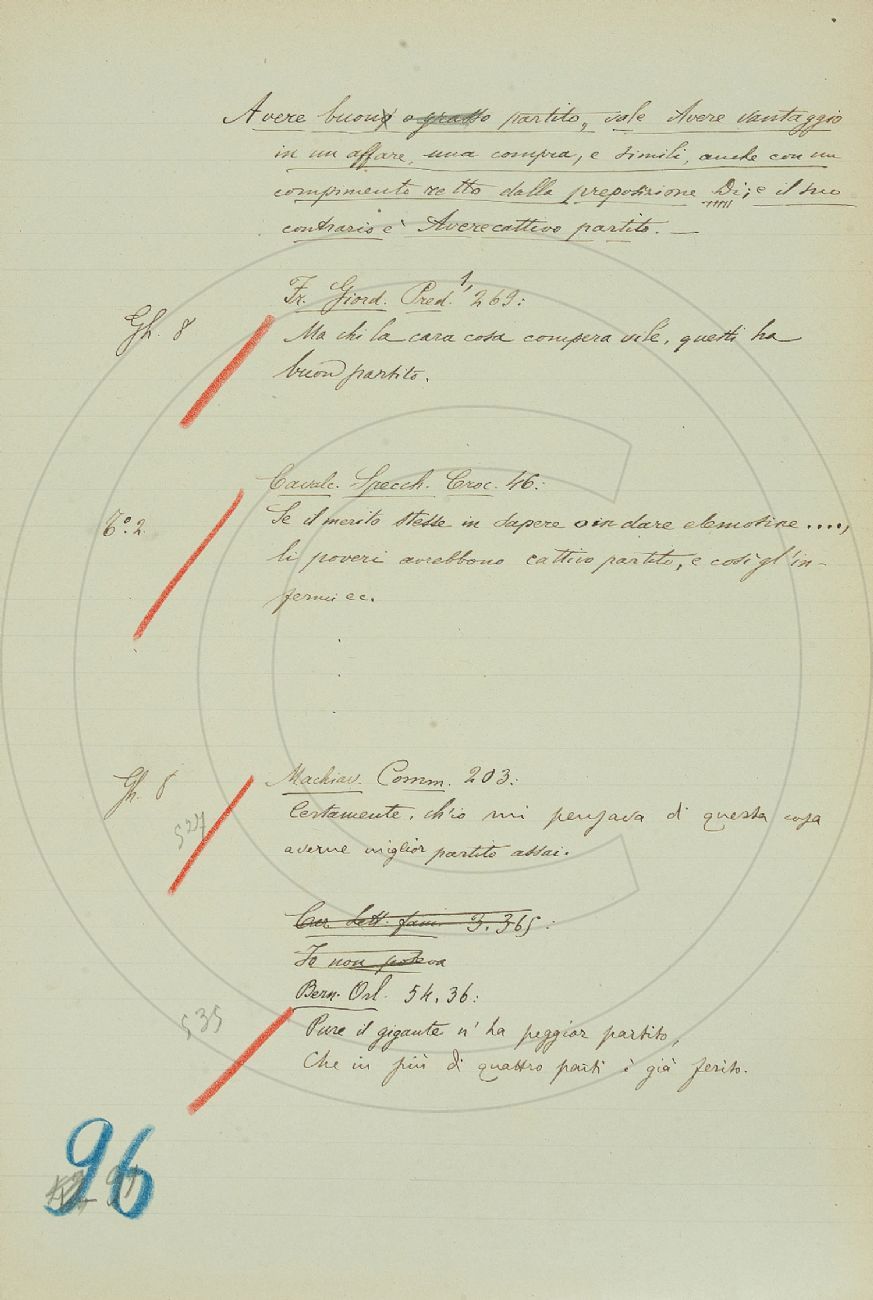 Avere buono o grasso partito, vale Avere vantaggio
in un affare, una compra, e simili, anche con un
compimento retto dalla preposizione Di; e il suo
contrario è Avere cattivo partito. —
Fr. Giord. Pred. 1, 269:
Gh. 8
Ma chi la cara cosa compera vile, questi ha
buon partito.
Cavalc. Specch. Croc. 46:
T.° 2.
Se il merito stesse in sapere o in dare elemosine....,
li poveri avrebbono cattivo partito, e così gl'in-
fermi ec.
Machiav. Comm. 203:
Gh. 8
527
Certamente, ch'io mi pensava di questa cosa
averne miglior partito assai.
Car. Lett. fam. 3. 365:
Io non poteva
Bern. Orl. 54. 36:
535
Pure il gigante n'ha peggior partito,
Che in più di quattro parti è già ferito.
96